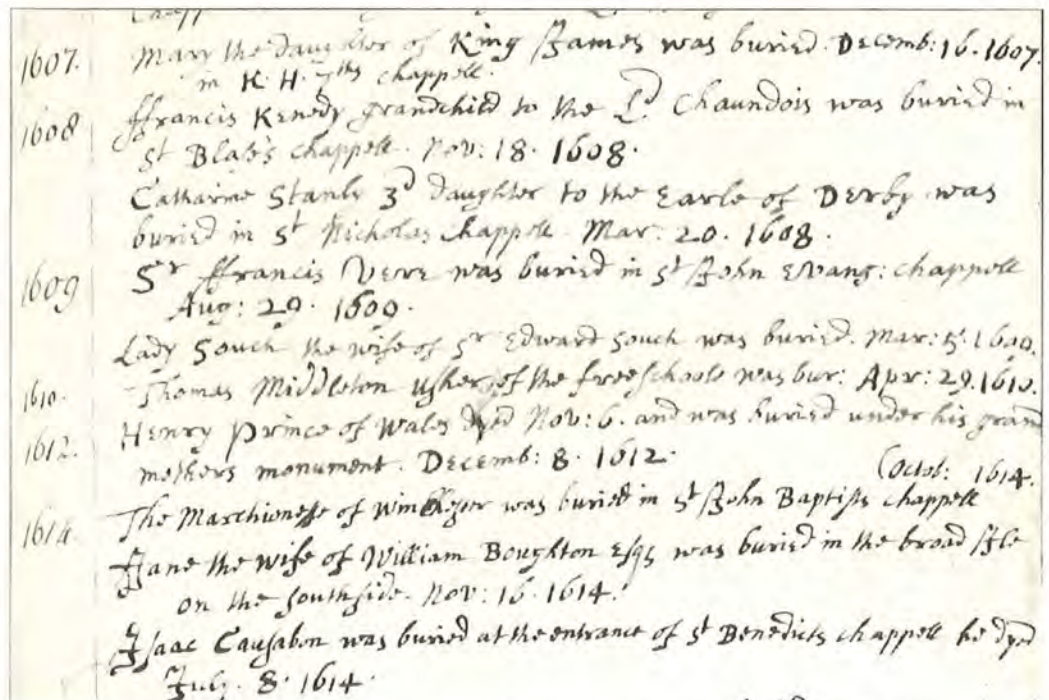 1607. Mary the daughter of King James was buried. Decemb: 16. 1607.
in K. H. 7ths chappell.
1608 ffrancis Kenedy grandchild to the Ld. Chaundois was buried in
St Blase's chappell. Nov: 18. 1608.
Catharine Stanly 3d daughter to the Earle of Derby was
buried in St Nicholas chappell. Mar: 20. 1608.
1609 Sr ffrancis Vere was buried in St John Evang: chappell
Aug: 29. 1609.
Lady Souch the wife of Sr Edward Souch was buried. Mar: 1609.
1610. Thomas Middleton usher of the freeschoole was bur: Apr: 29. 1610.
1612. Henry Prince of Wales dyed Nov: 6. and was buried under his grand
mothers monument. Decemb: 8. 1612.
(Octob: 1614.
1614. The Marchionesse of Winchester was buried in St John Baptists chappell
Jane the wife of William Boughton Esqr was buried in the broad Isle
on the southside. Nov: 16. 1614.
Isaac Causabon was buried at the entrance of St Benedicts chappell he dyed
July. 8. 1614.